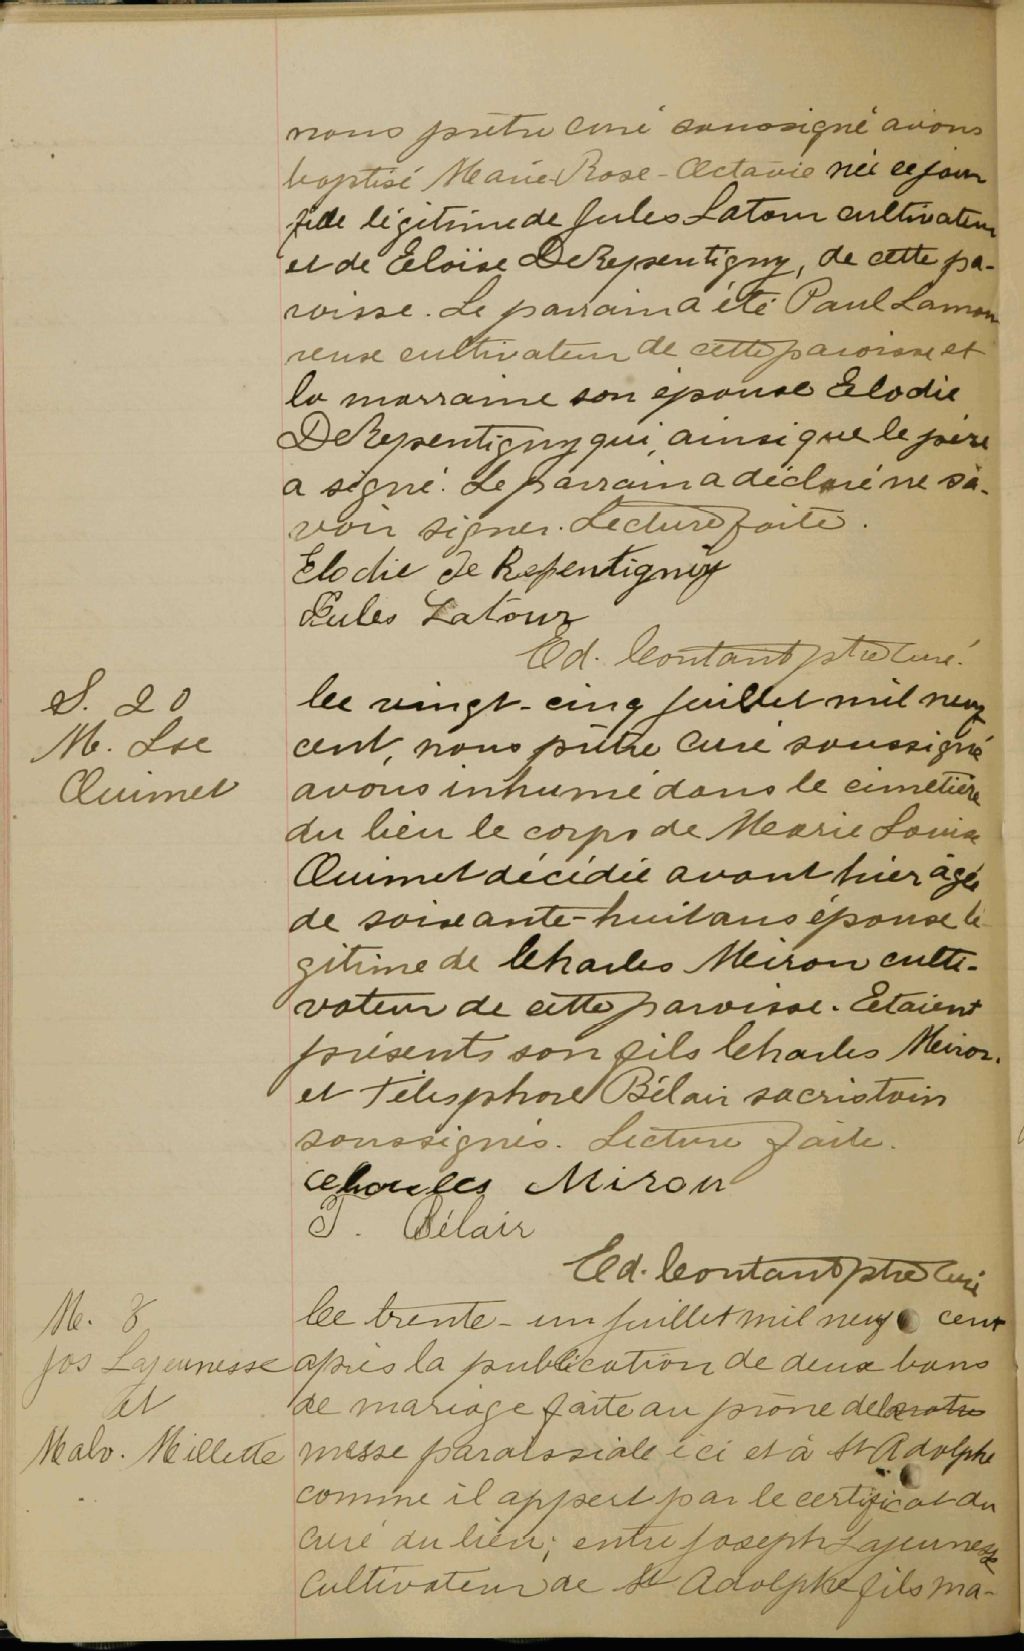 nous prêtre curé soussigné avons
baptisé Marie Rose-Octavie née ce jour
fille légitime de Jules Latour cultivateur
et de Eloïse DeRepentigny, de cette pa-
roisse. Le parrain a été Paul Lamou
reuse cultivateur de cette paroisse et
la marraine son épouse Elodie
DeRepentigny qui, ainsi que le père
a signé. Le parrain a déclaré ne sa-
voir signer. Lecture faite.
Elodie de Repentigny
Jules Latour
Ed. Contant ptre curé.
S. 20
M. Lse
Ouimet
Ce vingt-cinq juillet mil neuf
cent, nous prêtre curé soussigné
avons inhumé dans le cimetière
du lieu le corps de Marie Louise
Ouimet décédée avant hier âgée
de soixante-huit ans épouse lé
gitime de Charles Meiron culti-
vateur de cette paroisse. Etaient
présents son fils Charles Meiron.
et Télesphore Bélair sacristain
soussignés. Lecture faite.
Charles Miron
T. Bélair
Ed. Contant ptre curé
M. 8
Jos Lajeunesse
et
Malv. Millette
Ce trente-un juillet mil neuf cent
après la publication de deux bans
de mariage faite au prône de la notre
messe paroissiale ici et à St Adolphe
comme il appert par le certificat du
curé du lieu; entre Joseph Lajeunesse
cultivateur de St Adolphe fils ma-